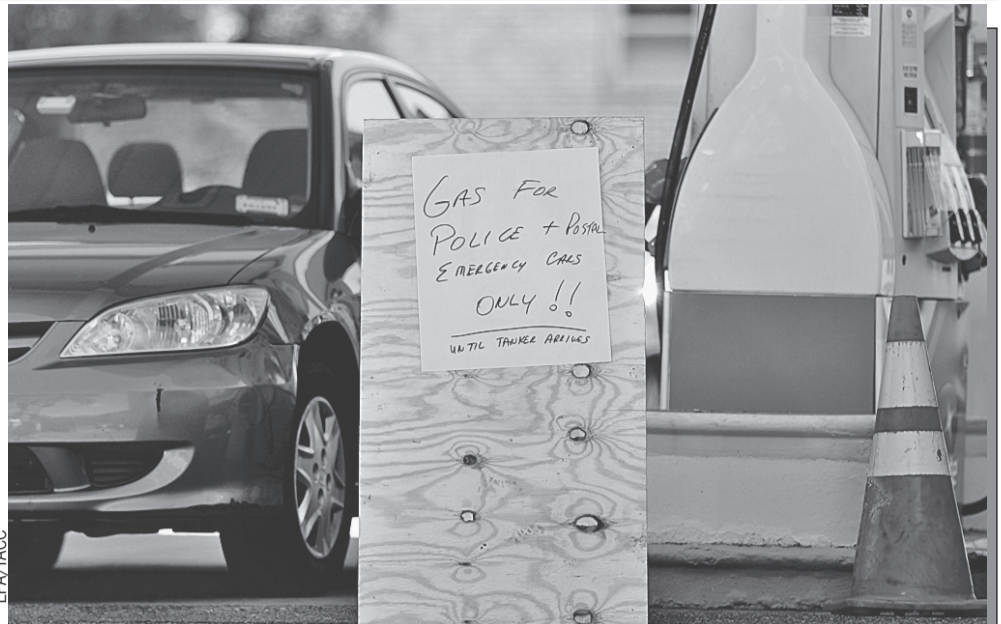 GAS FOR
POLICE + POSTAL
EMERGENCY CARS
ONLY !!
UNTIL TANKER ARRIVES